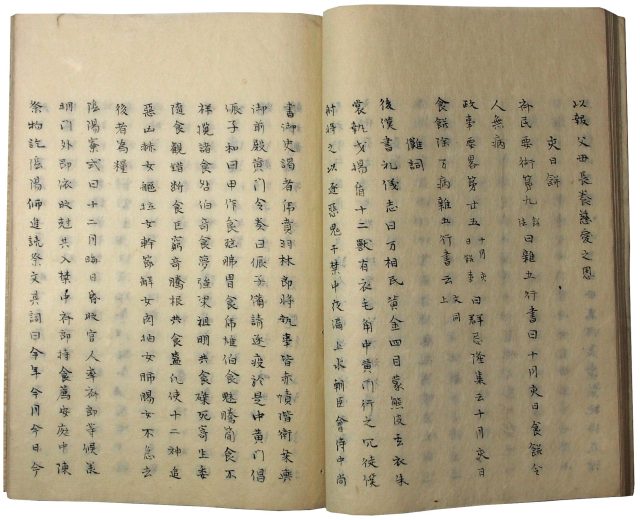 以報父母長養慈愛之恩
亥日餅
齊民要術第九餅法曰雜五行書曰十月亥日食餅令
人無病
政事要略第廿五十月亥日餅事曰群忌隆集云十月亥日
食餅除万病雜五行書云上文同
儺詞
後漢書礼儀志曰方相氏黄金四目蒙熊皮玄衣朱
裳執戈揚盾十二獣有衣毛角中黄門行之冗従僕
射将之以逐惡鬼于禁中夜漏上水朝臣會侍中尚
書御史謁者虎賁羽林郎将執事皆赤幘陛衛乗輿
御前殿黄門令奏曰侲子備請逐疫於是中黄門倡
侲子和曰甲作食𣧑胇胃食虎雄伯食魅騰簡食不
祥攬諸食咎伯奇食夢強梁祖明共食磔死寄生委
随食觀錯断食巨窮奇騰根共食蠱凡使十二神追
惡凶赫女軀拉女幹節解女肉抽女肺腸女不急去
後者為糧
陰陽寮式曰十二月晦日昏時官人率齊郎等候承
明門外即依時尅共入禁中齊郎持食薦安庭中陳
祭物訖陰陽師進読祭文其詞曰今年今月今日今